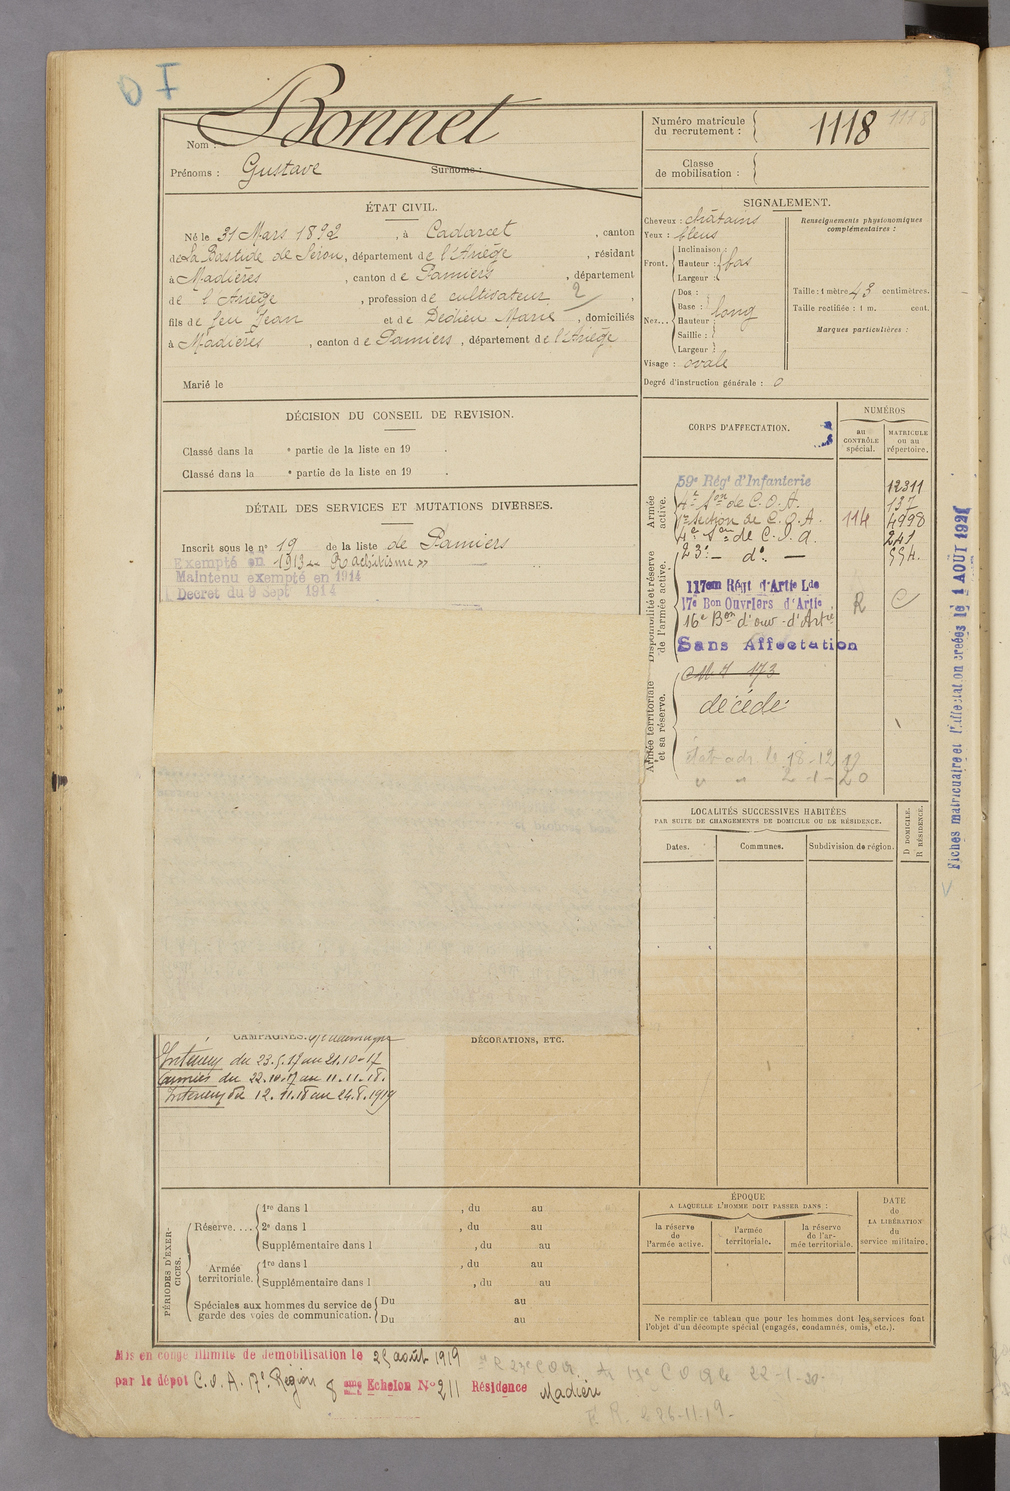 Bonnet
Nom :
Prénoms : Gustave Surnoms :
Numéro matricule
du recrutement :
1118
1118
Classe
de mobilisation :
ÉTAT CIVIL.
Né le 31 Mars 1892, à Cadarcet, canton
de La Bastide de Sérou, département de l'Ariège, résidant
à Madières, canton de Pamiers, département
de l'Ariège, profession de cultivateur,
fils de feu Jean et de Dedieu Marie, domiciliés
à Madières, canton de Pamiers, département de l'Ariège
Marié le
SIGNALEMENT.
Cheveux : châtains
Yeux : bleus
Front.
Inclinaison :
Hauteur : bas
Largeur :
Nez...
Dos :
Base : long
Hauteur :
Saillie :
Largeur :
Visage : ovale
Degré d'instruction générale : 0
Renseignements physionomiques
complémentaires :
Taille : 1 mètre 43 centimètres.
Taille rectifiée : 1 m. cent.
Marques particulières :
DÉCISION DU CONSEIL DE REVISION.
Classé dans la e partie de la liste en 19 .
Classé dans la e partie de la liste en 19 .
DÉTAIL DES SERVICES ET MUTATIONS DIVERSES.
Inscrit sous le n° 19 de la liste de Pamiers
Exempté en 1913 « Rachitisme »
Maintenu exempté en 1914
Decret du 9 Sept 1914
CORPS D'AFFECTATION.
NUMÉROS
au
CONTRÔLE
spécial.
MATRICULE
ou au
répertoire.
Armée
active.
59e Régt d'Infanterie 12311
4e Son de C.O.A. 137
1re Section de C.O.A. 114 4998
4e Son de C.O.A. 241
23e — do — 554.
Disponibilité et réserve
de l'armée active.
117em Régt d'Artie Lde
17e Bon Ouvriers d'Artie R C
16e Bon d'ouv. d'Artie
Sans Affectation
Armée territoriale
et sa réserve.
173
décédé
le 18-12 19
" " 2-1-20
Fiches matriculaire et d'affectation créées le 1 AOÛT 1921
LOCALITÉS SUCCESSIVES HABITÉES
PAR SUITE DE CHANGEMENTS DE DOMICILE OU DE RÉSIDENCE.
Dates.
Communes.
Subdivision de région.
D. DOMICILE.
R. RÉSIDENCE.
CAMPAGNES. c/ Allemagne
Intérieur du 23.5.17 au 21.10-17
Armées du 22.10.17 au 11.11.18.
Intérieur du 12.11.18 au 24.8.1919
DÉCORATIONS, ETC.
PÉRIODES D'EXER-
CICES.
Réserve....
1re dans l , du au
2e dans l , du au
Supplémentaire dans l , du au
Armée
territoriale.
1re dans l , du au
Supplémentaire dans l , du au
Spéciales aux hommes du service de
garde des voies de communication.
Du au
Du au
ÉPOQUE
A LAQUELLE L'HOMME DOIT PASSER DANS :
la réserve
de
l'armée active.
l'armée
territoriale.
la réserve
de l'ar-
mée territoriale.
DATE
de
LA LIBÉRATION
du
service militaire.
Ne remplir ce tableau que pour les hommes dont les services font
l'objet d'un décompte spécial (engagés, condamnés, omis, etc.).
Mis en congé illimité de démobilisation le 25 août 1919
par le dépôt C.O.A. 17e Région 8 eme Echelon N° 211 Résidence Madière
22-1-20.
26-11-19.